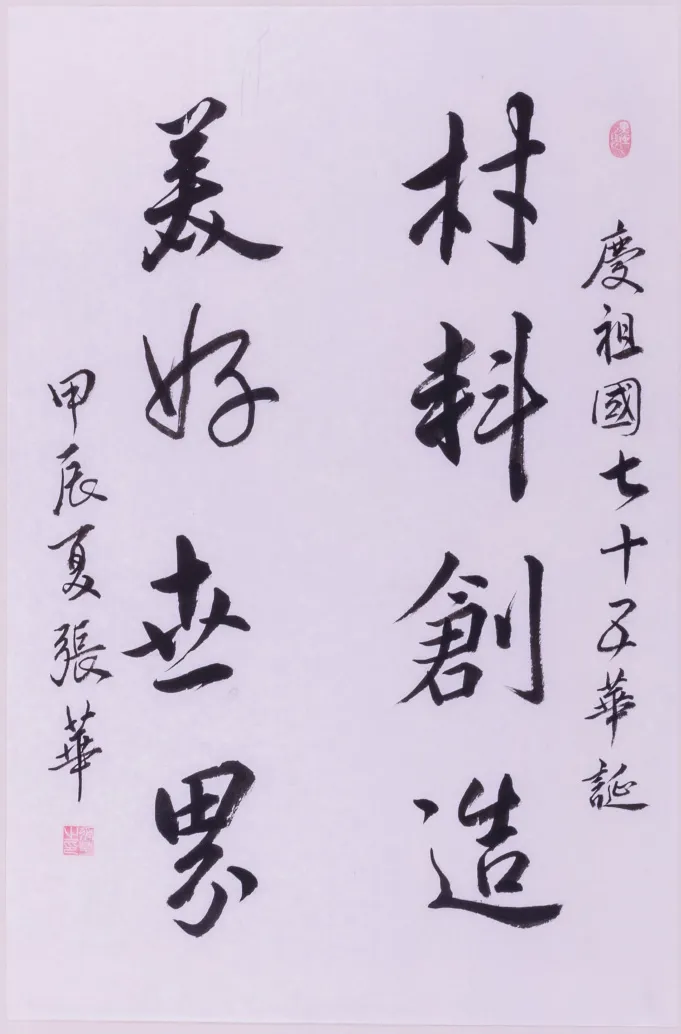 慶祖國七十五華誕
材料創造
美好世界
甲辰夏張華